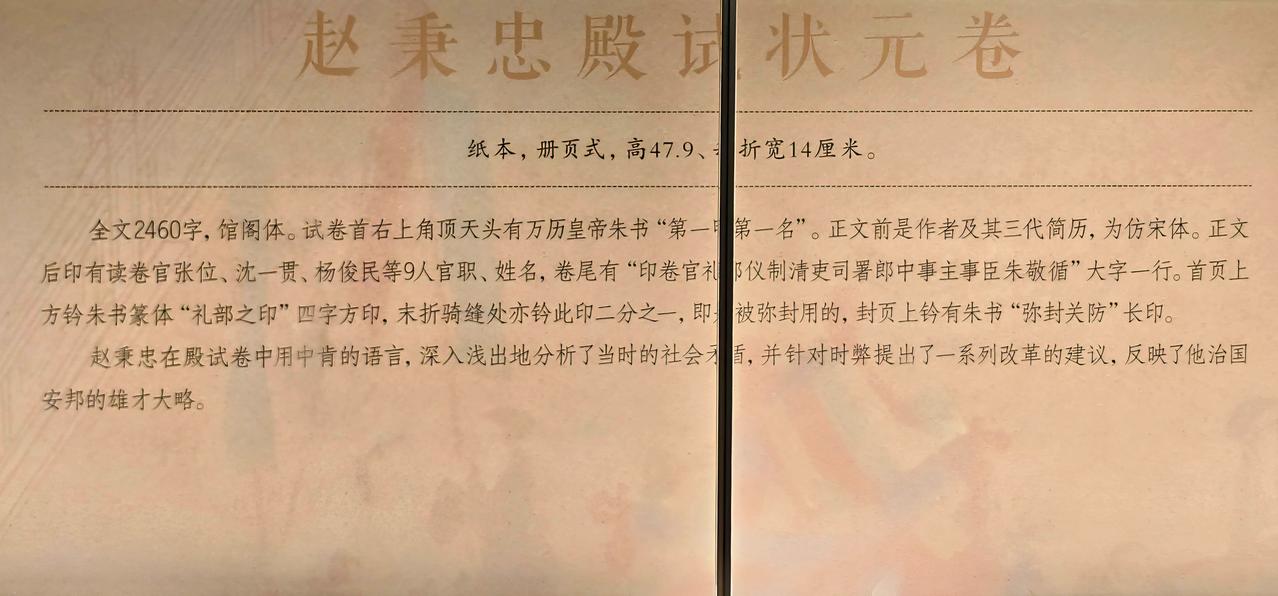 赵秉忠殿试状元卷
纸本，册页式，高47.9、折宽14厘米。
全文2460字，馆阁体。试卷首右上角顶天头有万历皇帝朱书“第一甲第一名”。正文前是作者及其三代简历，为仿宋体。正文
后印有读卷官张位、沈一贯、杨俊民等9人官职、姓名，卷尾有“印卷官礼部仪制清吏司署郎中事主事臣朱敬循”大字一行。首页上
方钤朱书篆体“礼部之印”四字方印，末折骑缝处亦钤此印二分之一，即被弥封用的，封页上钤有朱书“弥封关防”长印。
赵秉忠在殿试卷中用中肯的语言，深入浅出地分析了当时的社会矛盾，并针对时弊提出了一系列改革的建议，反映了他治国
安邦的雄才大略。